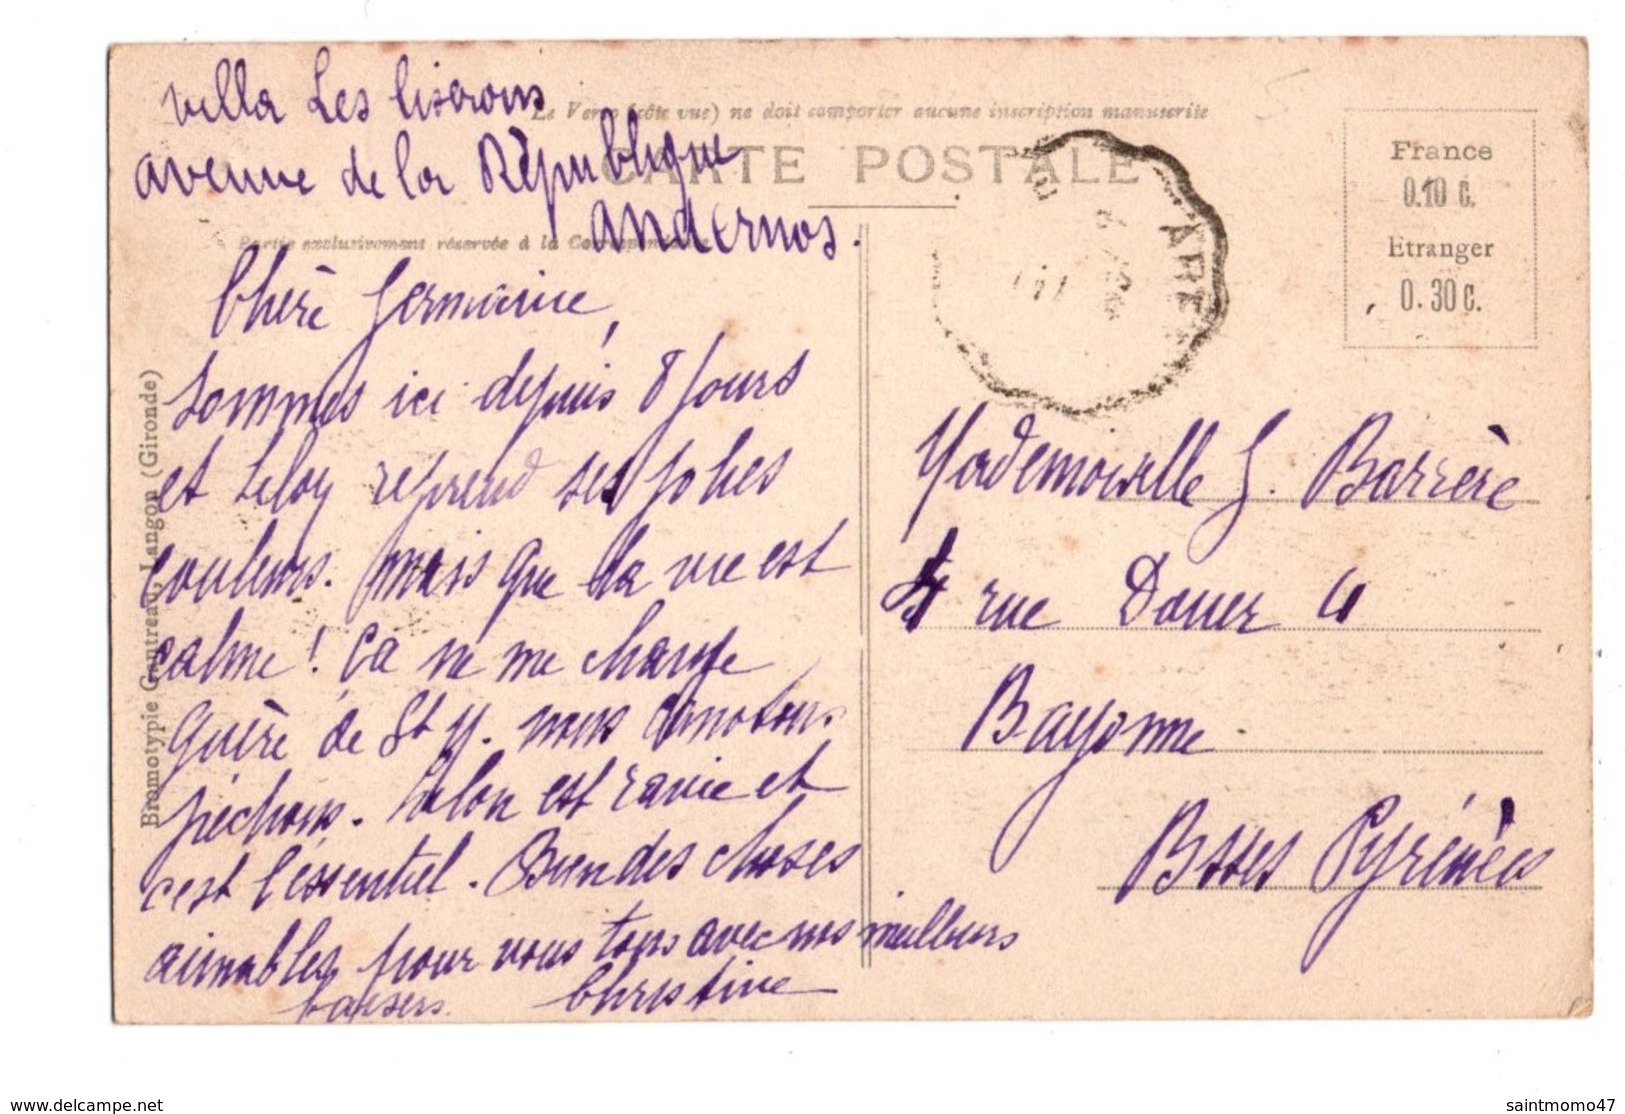 Villa Les liserons
Le Verso (côté vue) ne doit comporter aucune inscription manuscrite
avenue de la République
CARTE POSTALE
Andernos.
Partie exclusivement réservée à la Correspondance
France
0.10 C.
Etranger
0.30 C.
ARE
Chère Germaine,
Sommes ici depuis 8 jours
et reprend ses jolies
couleurs. mais que la vie est
calme ! Ça ne me change
guère de St y. nous canotons
pêchons. est ravie et
c'est l'éssentiel. Bien des choses
aimables pour vous tous avec nos meilleurs
baisers Christine
Mademoiselle G. Barrère
4 rue Douer 4
Bayonne
Bsses Pyrénées
Bromotypie Gautreau, Langon (Gironde)
www.delcampe.net
saintmomo47